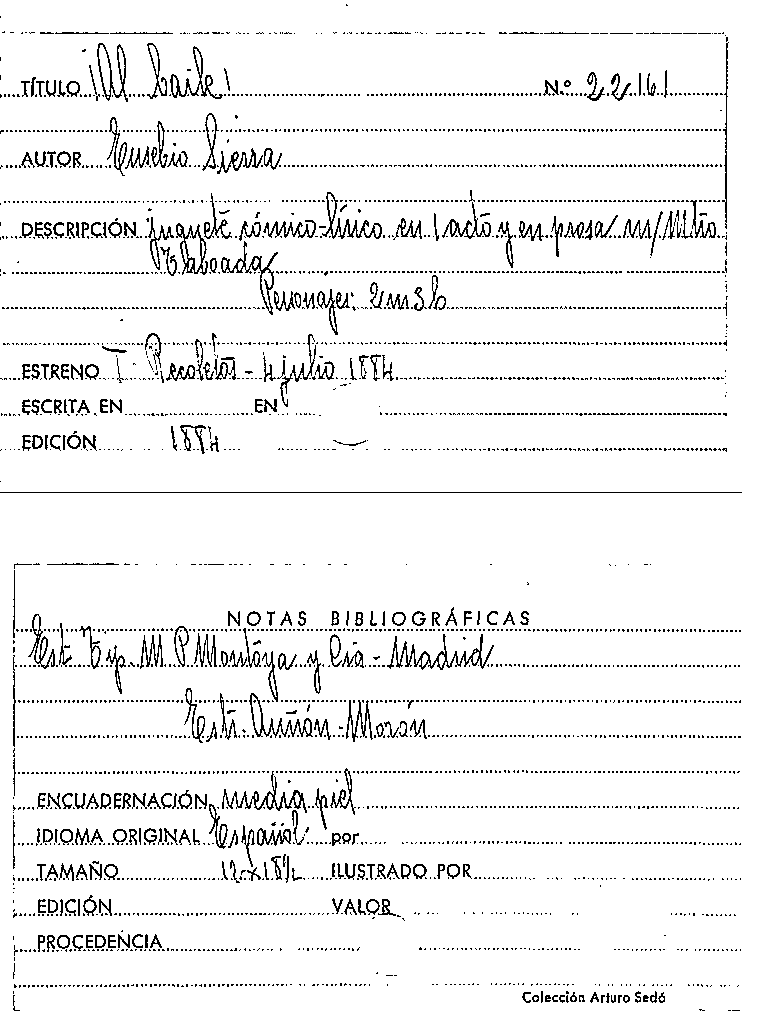 TÍTULO ¡Al baile! N.º 22161
AUTOR Eusebio Sierra
DESCRIPCIÓN juguete cómico-lírico en 1 acto y en prosa m/ Mtro
Taboada
Personajes: 2m3h
ESTRENO T. Recoletos - 4 julio 1884
ESCRITA EN EN
EDICIÓN 1884
NOTAS BIBLIOGRÁFICAS
Est Tip. M P Montoya y Cía - Madrid
Estr. Auñón - Morón
ENCUADERNACIÓN media piel
IDIOMA ORIGINAL Español por
TAMAÑO ILUSTRADO POR
EDICIÓN VALOR
PROCEDENCIA
Colección Arturo Sedó